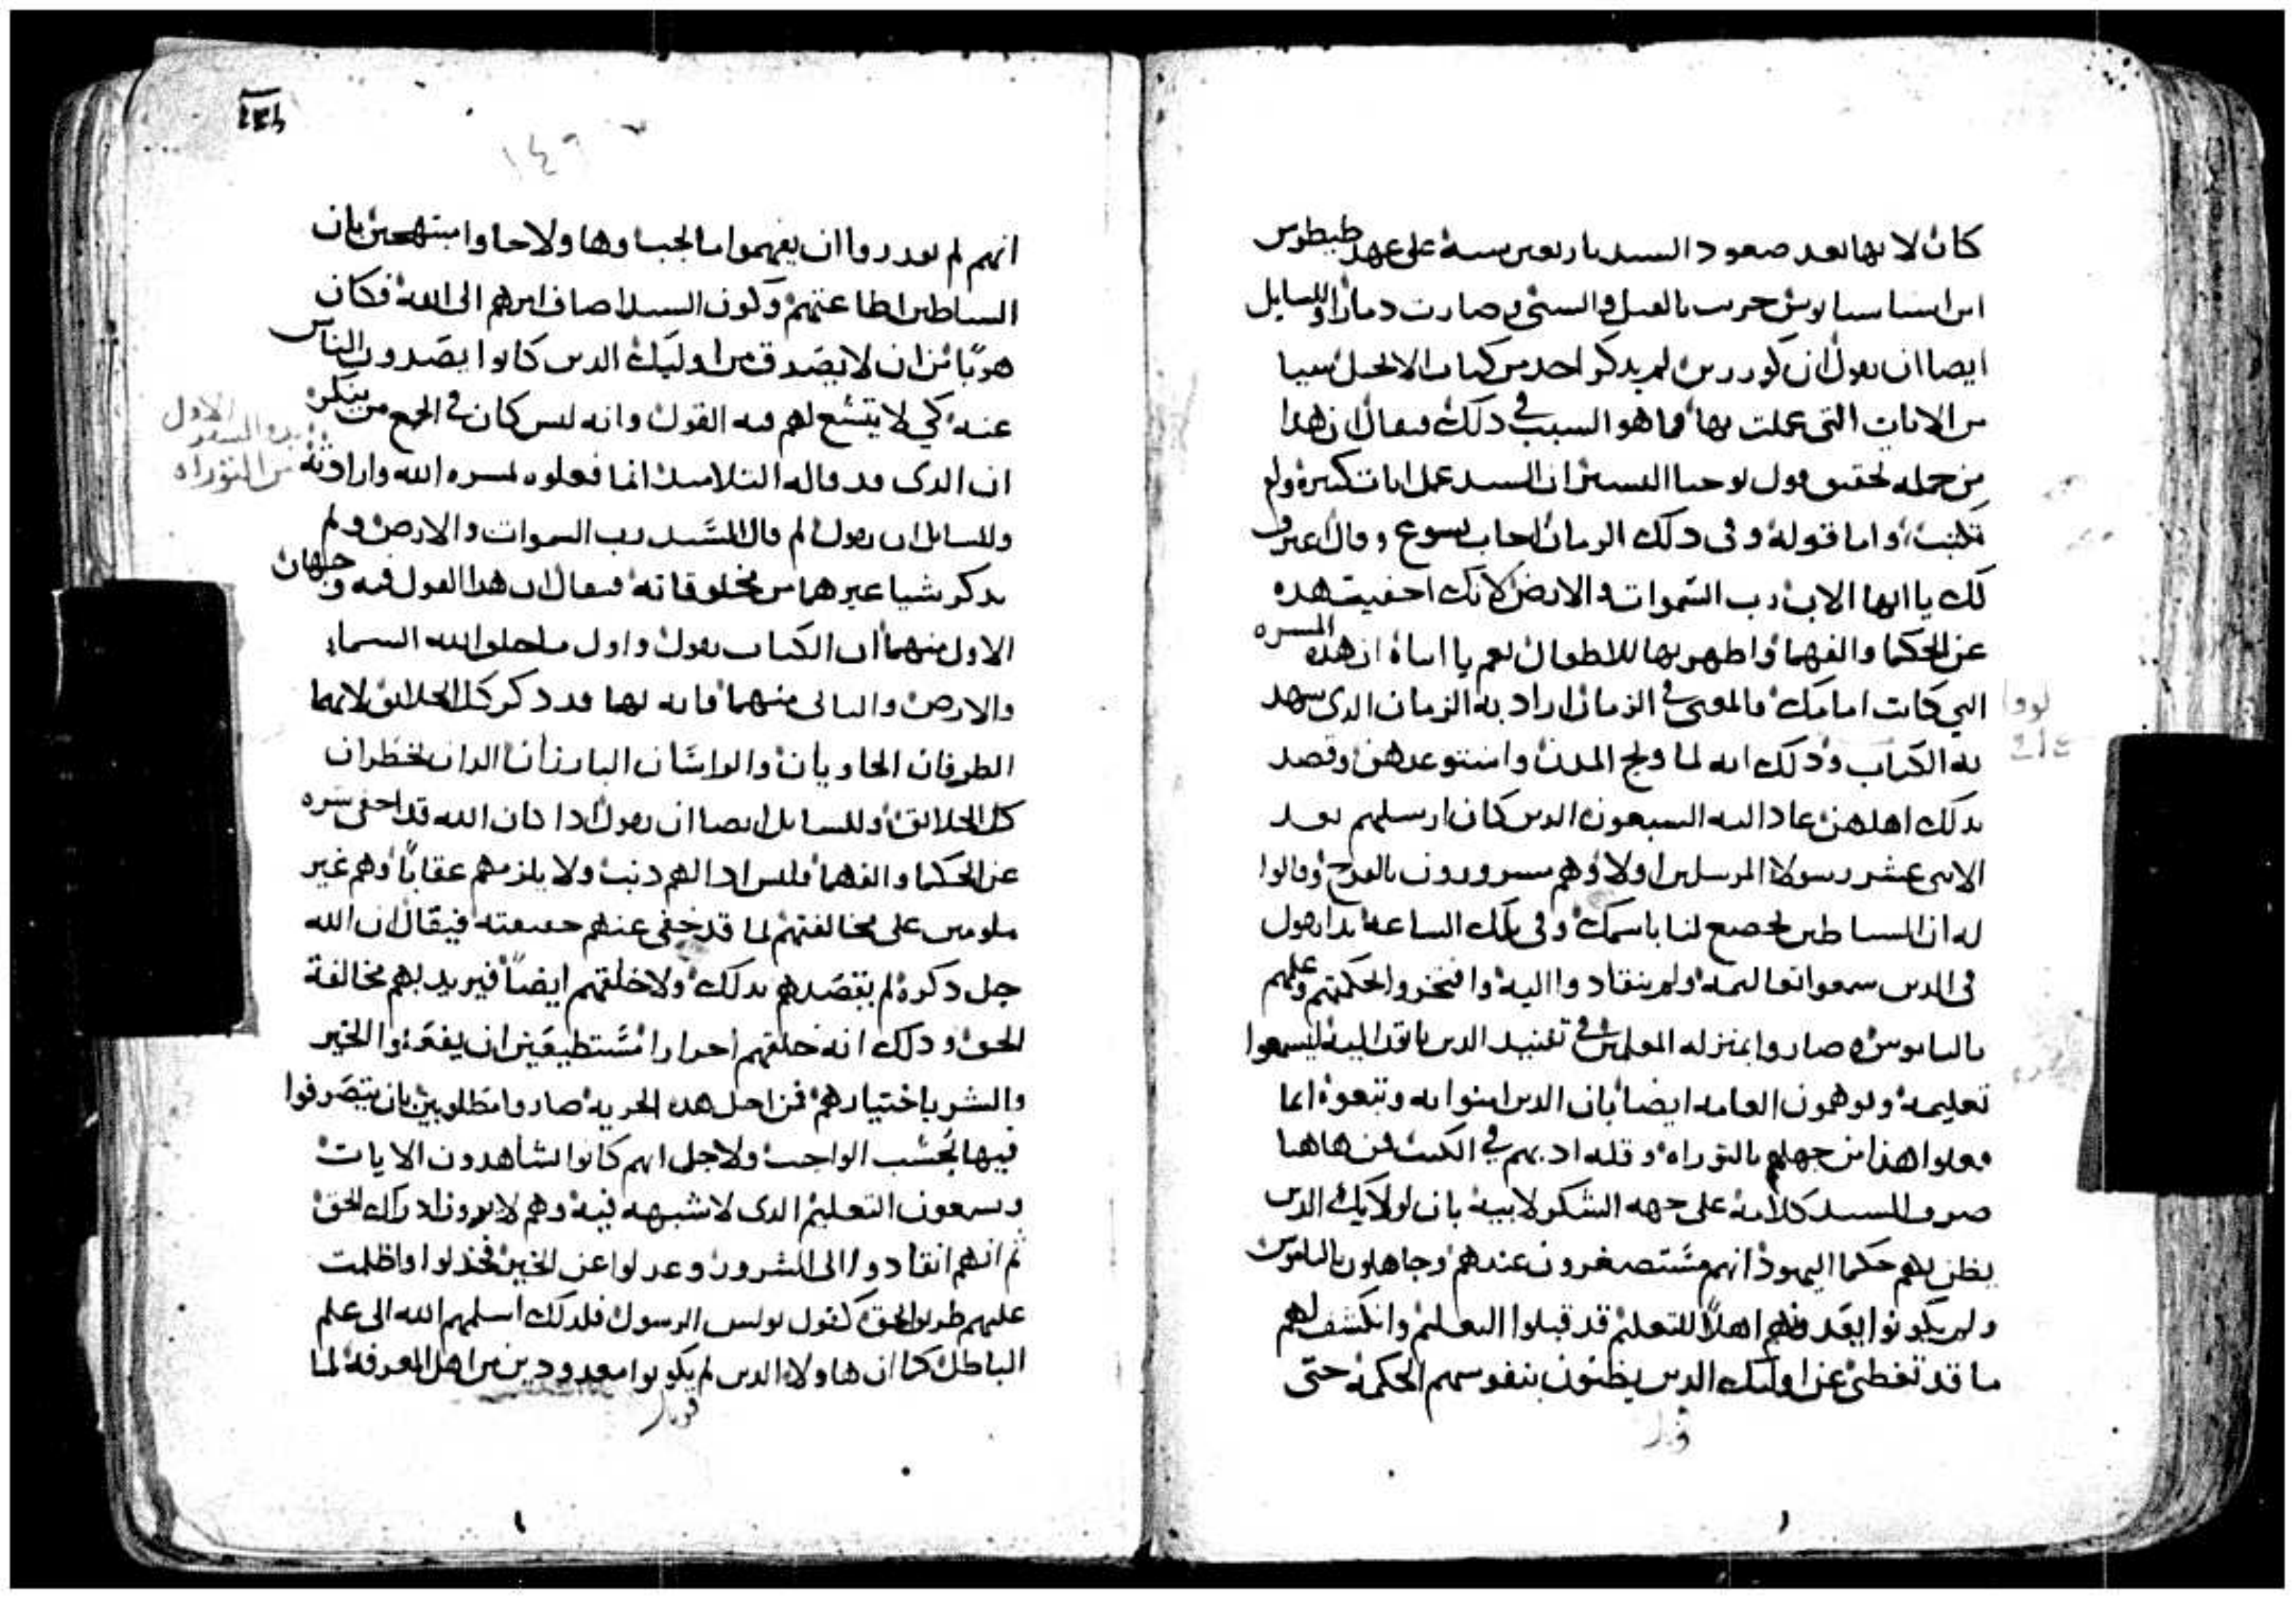 كان لانها بعد صعود السيد باربعين سنة على عهد طيطوس
ابن اسباسيانوس خربت بالقتل والسبي وصارت دمارا وللسايل
ايضا ان يقول ان كورزين لم يذكر احد من كتاب الانجيل شيا
من الايات التي عملت بها فما هو السبب في ذلك فيقال ان هذا
من جمله تحقيق قول يوحنا البشير ان السيد عمل ايات كثيرة ولم
تكتب واما قوله وفي ذلك الزمان اجاب يسوع وقال اعترف
لك يا ايها الاب رب السموات والارض لانك اخفيت هذه
عن الحكما والفهما واظهرتها للاطفال نعم يا ابتاه ان هذه المسره
التي كانت امامك فالمعنى في الزمان اراد به الزمان الذي شهد
به الكتاب وذلك انه لما وبخ المدن واستوعدهن وقصد
بذلك اهلهن عاد اليه السبعون الذين كان ارسلهم بعد
الاثني عشر رسولا المرسلين اولا وهم مسرورون بالفرح وقالوا
له ان الشياطين تخضع لنا باسمك وفي تلك الساعة بدا يقول
في الذين سمعوا تعاليمه ولم ينقادوا اليه وافتخروا بحكمتهم وعلمهم
بالناموس وصاروا بمنزله المعلمين في تفنيد الدين ياتون اليه ليسمعوا
تعليمه ويوهمون العامه ايضا بان الذين امنوا به وتبعوه انما
فعلوا هذا من جهلهم بالتوراه وقله ادبهم في الكتب فمن هاهنا
صرف السيد كلامه على جهه الشكر لابيه بان اولايك الذين
يظن بهم حكما اليهود انهم مستصغرون عندهم وجاهلون بالناموس
ولم يكونوا يعدونهم اهلا للتعليم قد قبلوا التعليم وانكشف لهم
ما قد تغطى عن اوليك الذين يظنون بنفوسهم الحكمة حتى
قوبل
لوقا
١٤٩
انهم لم يقدروا ان يفهموا ما الجبا وها ولا جاوا مبتهجين بان
الشياطين اطاعتهم وكون السيد اضاف امرهم الى الله فكان
هربا من ان لا يصدق من اوليك الذين كانوا يصدون الناس
عنه كي لا يتسع لهم فيه القول وانه ليس كان في الجمع من ينكره
ان الذي قد قاله التلاميذ انما فعلوه لمسره الله وارادته
وللسايل ان يقول لم قال السيد رب السموات والارض ولم
يذكر شيا غيرهما من مخلوقاته فيقال ان هذا القول فيه وجهان
الاول منهما ان الكتاب يقول واول ما خلق الله السماء
والارض والثاني منهما فانه بهما قد ذكر كل الخلايق لانهما
الطرفان الحاويان والراسان البارزان اللذان يحظران
كل الخلايق وللسايل ايضا ان يقول اذا كان الله قد اخفى سره
عن الحكما والفهما فليس اذا لهم ذنب ولا يلزمهم عقابا وهم غير
ملومين على مخالفتهم لما قد خفي عنهم حقيقته فيقال ان الله
جل ذكره لم يقصدهم بذلك ولا خلقهم ايضا فيريد بهم مخالفة
الحق وذلك انه خلقهم احرارا مستطيعين ان يفعلوا الخير
والشر باختيارهم فمن اجل هذه الحريه صاروا مطلوبين بان يتصرفوا
فيها بحسب الواجب ولاجل انهم كانوا يشاهدون الايات
ويسمعون التعليم الذي لا شبهه فيه وهم لا يرون ادراك الحق
ثم انهم انقادوا الى الشرور وعدلوا عن الخير فخذلوا واظلمت
عليهم طريق الحق كقول بولس الرسول فلذلك اسلمهم الله الى علم
الباطل كما ان هاولاء الذين لم يكونوا معدودين من اهل المعرفة لما
قوبل
بدو السفر الاول
من التوراه